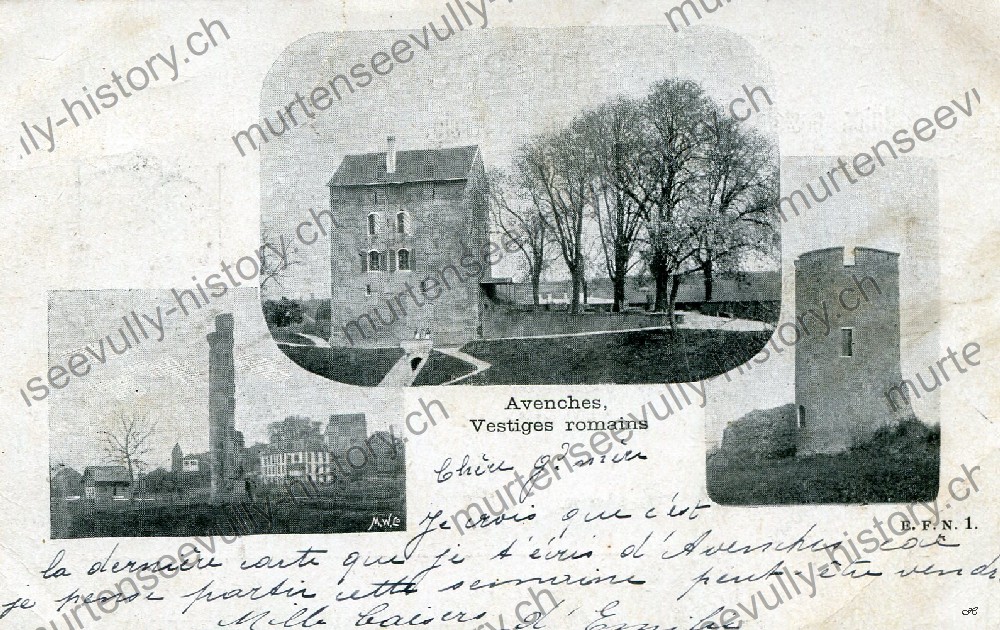 Avenches,
Vestiges romains
Chère gd mère
Je crois que c'est
la dernière carte que je t'écris d'Avenches car
je pense partir cette semaine peut être vendr
Mille baisers d'Emilie
M.W.C
E. F. N. 1.
murtenseevully-history.ch